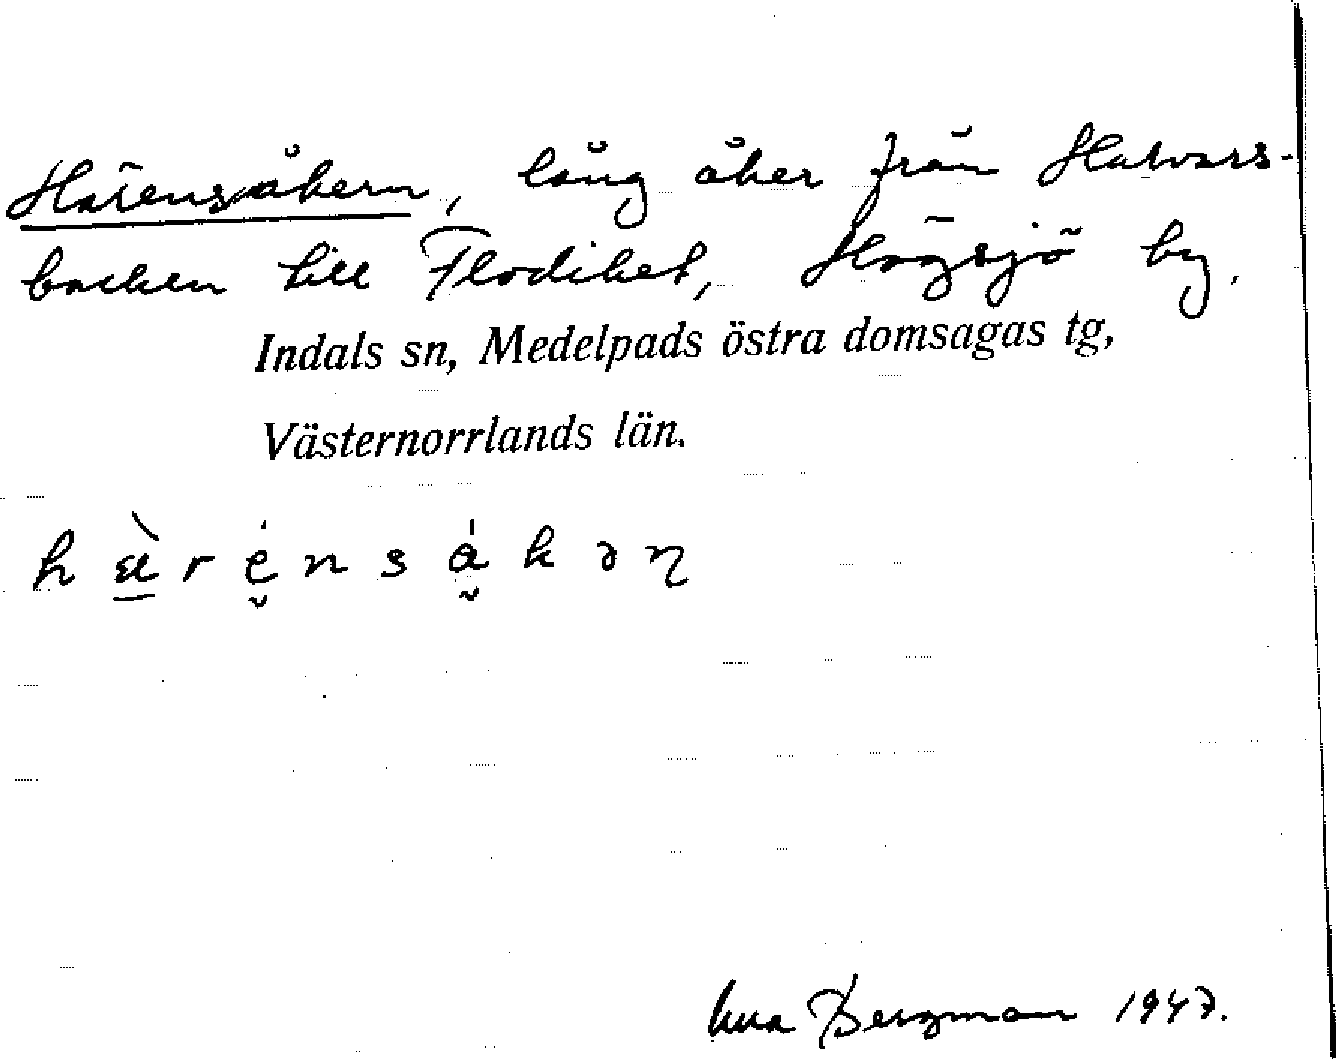 Härensåkern, lång åker från Halvars-
backen till Flodiket, Högsjö by.
Indals sn, Medelpads östra domsagas tg,
Västernorrlands län.
Bergman 1947.